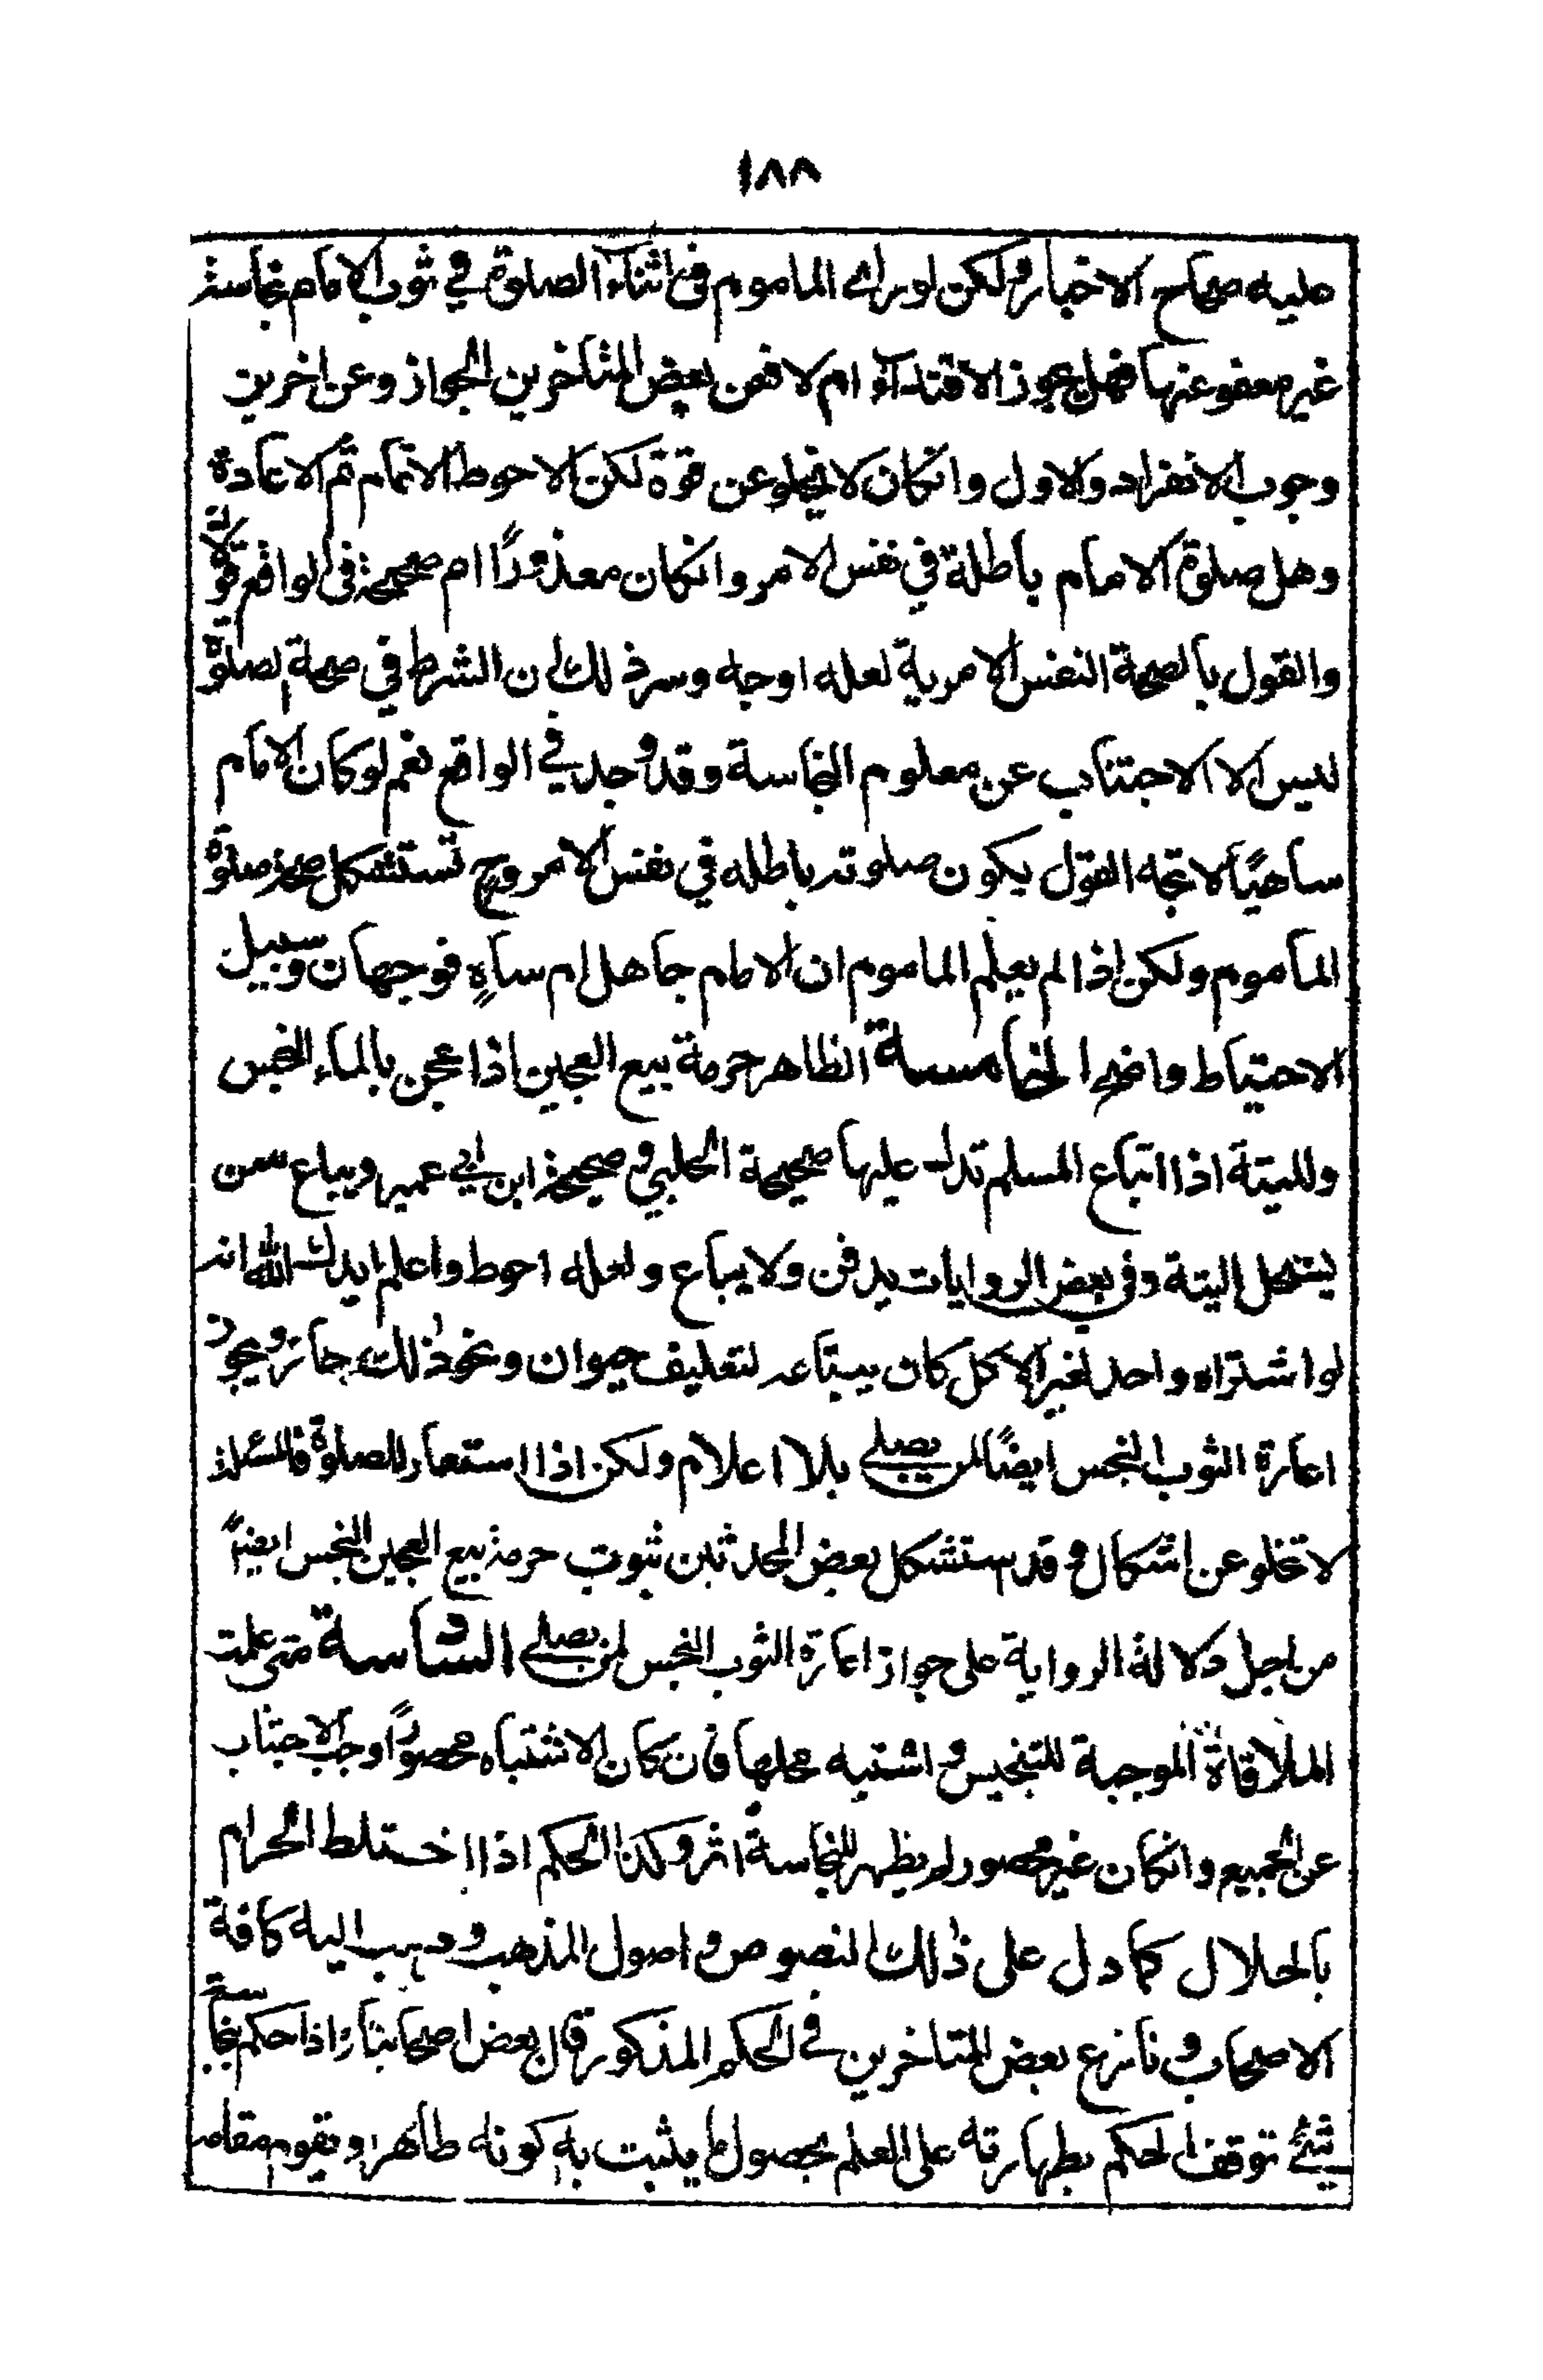 ١٨٨
عليه صحاح الاخبار ولكن لو رای الماموم فی اثناء الصلوة في ثوب الامام نجاسة
غير معفو عنها فهل يجوز الاقتداء ام لا فعن بعض المتاخرين الجواز وعن اخرين
وجوب الانفراد والاول وانكان لا يخلو عن قوة لكن الاحوط الاتمام ثم الاعادة
وهل صلوة الامام باطلة في نفس الامر وانكان معذورًا ام صحيحة فى الواقع قولان
والقول بالصحة النفس الامرية لعله اوجه وسر ذلك ان الشرط في صحة الصلوة
ليس الا الاجتناب عن معلوم النجاسة وقد وجد في الواقع نعم لو كان الامام
ساهيًا لاتجه القول بكون صلوته باطله في نفس الامر وح تستشكل صحة صلوة
الماموم ولكن اذا لم يعلم الماموم ان الامام جاهل ام ساهٍ فوجهان وسبيل
الاحتياط واضح الخامسة الظاهر حرمة بيع العجين اذا عجن بالماء النجس
وللميتة اذا اتباع المسلم تدل عليها صحيحة الحلبي و صحيحة ابن ابي عمير ويباع ممن
يستحل الميتة وفى بعض الروايات يدفن ولا يباع ولعله احوط واعلم ايدك الله انه
لو اشتراه واحد لغير الاكل كان يبتاعه لتعليف حيوان ونحو ذلك جائز ويجوز
اعارة الثوب النجس ايضًا لمن يصلي بلا اعلام ولكن اذا استعار للصلوة فالمسئلة
لا تخلو عن اشكال و قد استشكل بعض المحدثين ثبوت حرمة بيع العجين النجس ايضًا
من اجل دلالة الرواية على جواز اعارة الثوب النجس لمن يصلي السادسة متى علمت
الملاقاة الموجبة للتنجيس و اشتبه محلها فان كان الاشتباه محصورًا وجب الاجتناب
عن الجميع وانكان غير محصور لم يظهر للنجاسة اثر وكذا الحكم اذا اختلط الحرام
بالحلال كما دل على ذلك النصوص و اصول المذهب وذهب اليه كافة
الاصحاب و نازع بعض المتاخرين في الحكم المذكور قال بعض اصحابنا اذا حكم بنجاسة
شئ توقف الحكم بطهارته على العلم بحصول ما يثبت به كونه طاهرا و يقوم مقامه